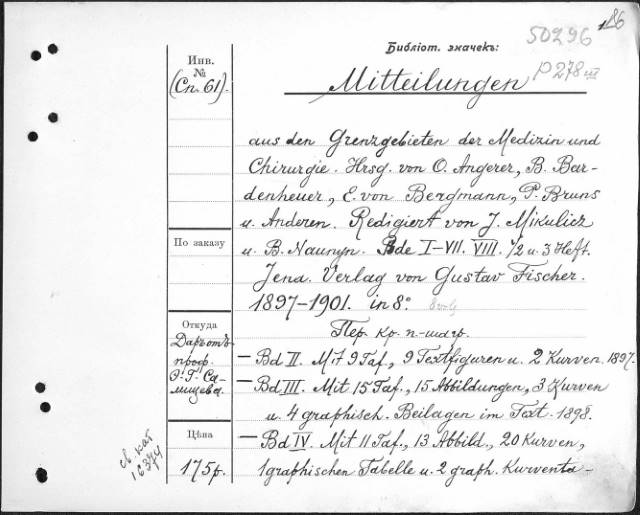 50296
86
Библіот. значекъ:
P278 III
Инв.
№
(Сп. 61).
Mitteilungen
aus den Grenzgebieten der Medizin und
Chirurgie. Hrsg. von O. Angerer, B. Bar-
denheuer, E. von Bergmann, P. Bruns
u. Anderen. Redigiert von J. Mikulicz
По заказу
u. B. Naunyn. Bde I-VII. VIII. 1/2 u. 3 Heft.
Jena. Verlag von Gustav Fischer.
1897-1901. in 8°.
Откуда
Даръ отъ
проф.
Пер. кр. п-шагр.
— Bd II. Mit 9 Taf., 9 Textfiguren u. 2 Kurven. 1897.
— Bd III. Mit 15 Taf., 15 Abbildungen, 3 Kurven
u. 4 graphisch. Beilagen im Text. 1898.
Цѣна
175р.
— Bd IV. Mit 11 Taf., 13 Abbild., 20 Kurven,
1 graphischen Tabelle u. 2 graph. Kurventa-
св. кат
16374